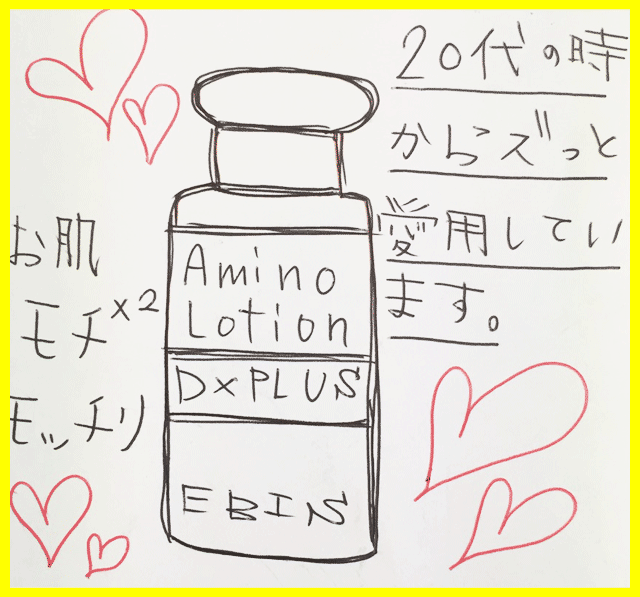 20代の時
からズっと
愛用してい
ます。
お肌
モチ×2
モッチリ
Amino
Lotion
D×PLUS
EBIS